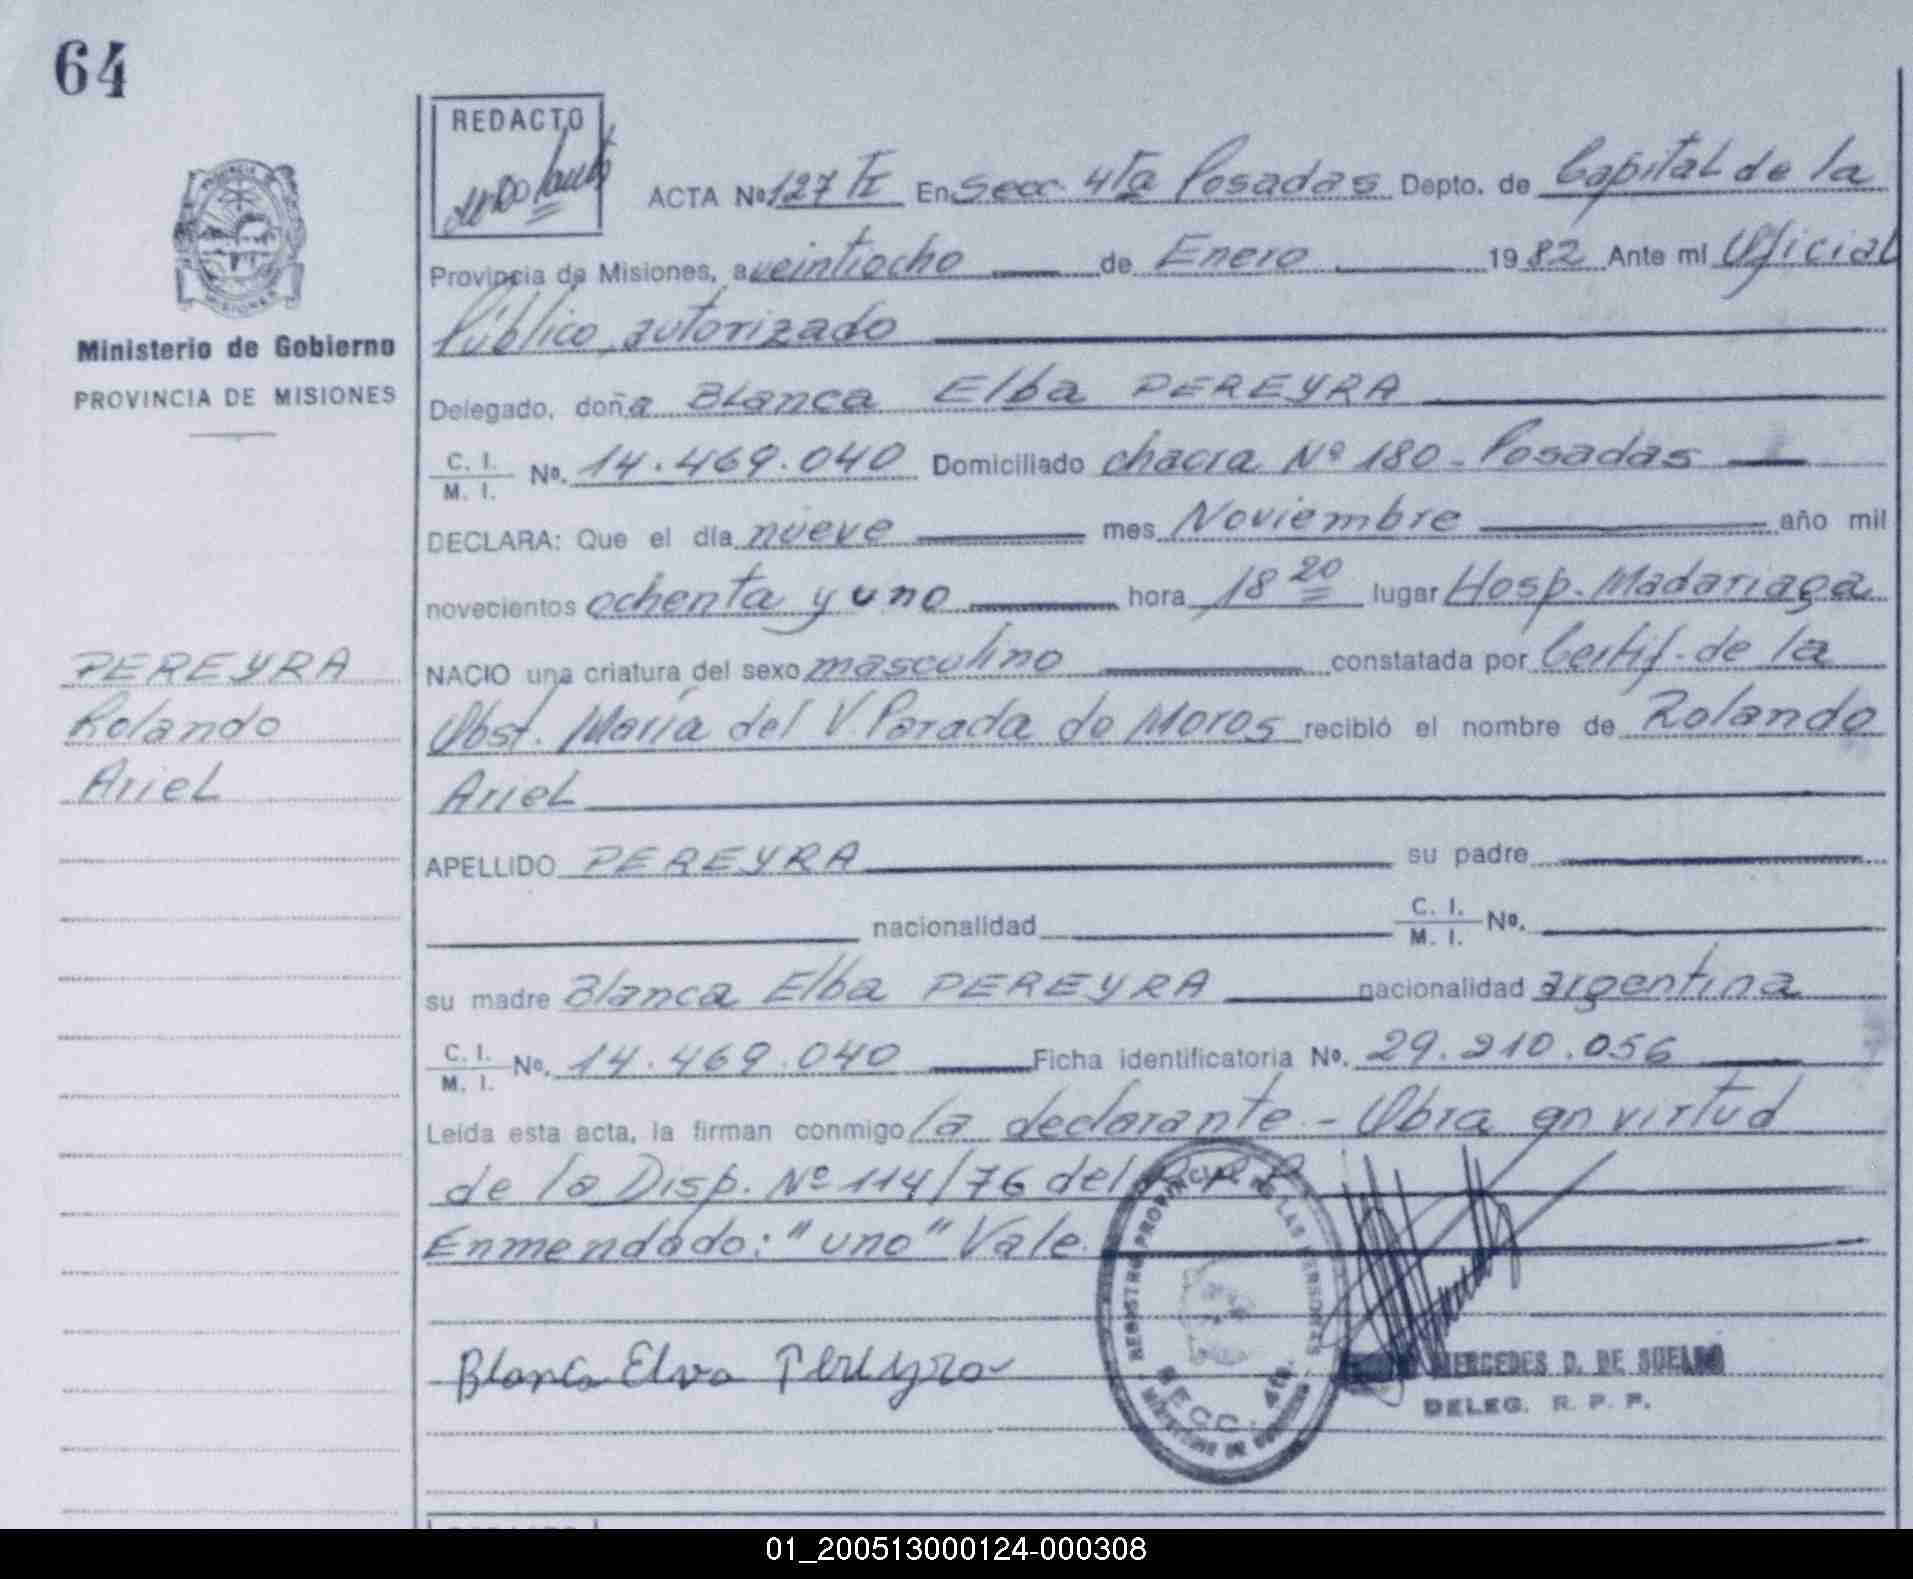 64
REDACTO
ACTA Nº 127 TI En Secc. 4ta Posadas Depto. de Capital de la
Provincia de Misiones, a veintiocho de Enero 1982 Ante mi Oficial
Público autorizado
Ministerio de Gobierno
PROVINCIA DE MISIONES
Delegado, doña Blanca Elba PEREYRA
C. I.
M. I. No. 14.469.040 Domiciliado chacra Nº 180 - Posadas
DECLARA: Que el día nueve mes Noviembre año mil
novecientos ochenta y uno hora 18 20 lugar Hosp. Madariaga
NACIO una criatura del sexo masculino constatada por Certif. de la
Obst. María del V. Parada de Moros recibió el nombre de Rolando
Ariel
PEREYRA
Rolando
Ariel
APELLIDO PEREYRA su padre
nacionalidad C. I.
M. I. No.
su madre Blanca Elba PEREYRA nacionalidad argentina
C. I.
M. I. No. 14.469.040 Ficha identificatoria No. 29.210.056
Leída esta acta, la firman conmigo la declarante.- Obra en virtud
de la Disp. Nº 114/76 del R.P.P.
Enmendado: "uno" Vale.
Blanca Elva Pereyra
REGISTRO PROVINCIAL DE LAS PERSONAS
SECC. 4ta.
MINISTERIO DE GOBIERNO
MERCEDES D. DE SUELDO
DELEG. R. P. P.
01_200513000124-000308